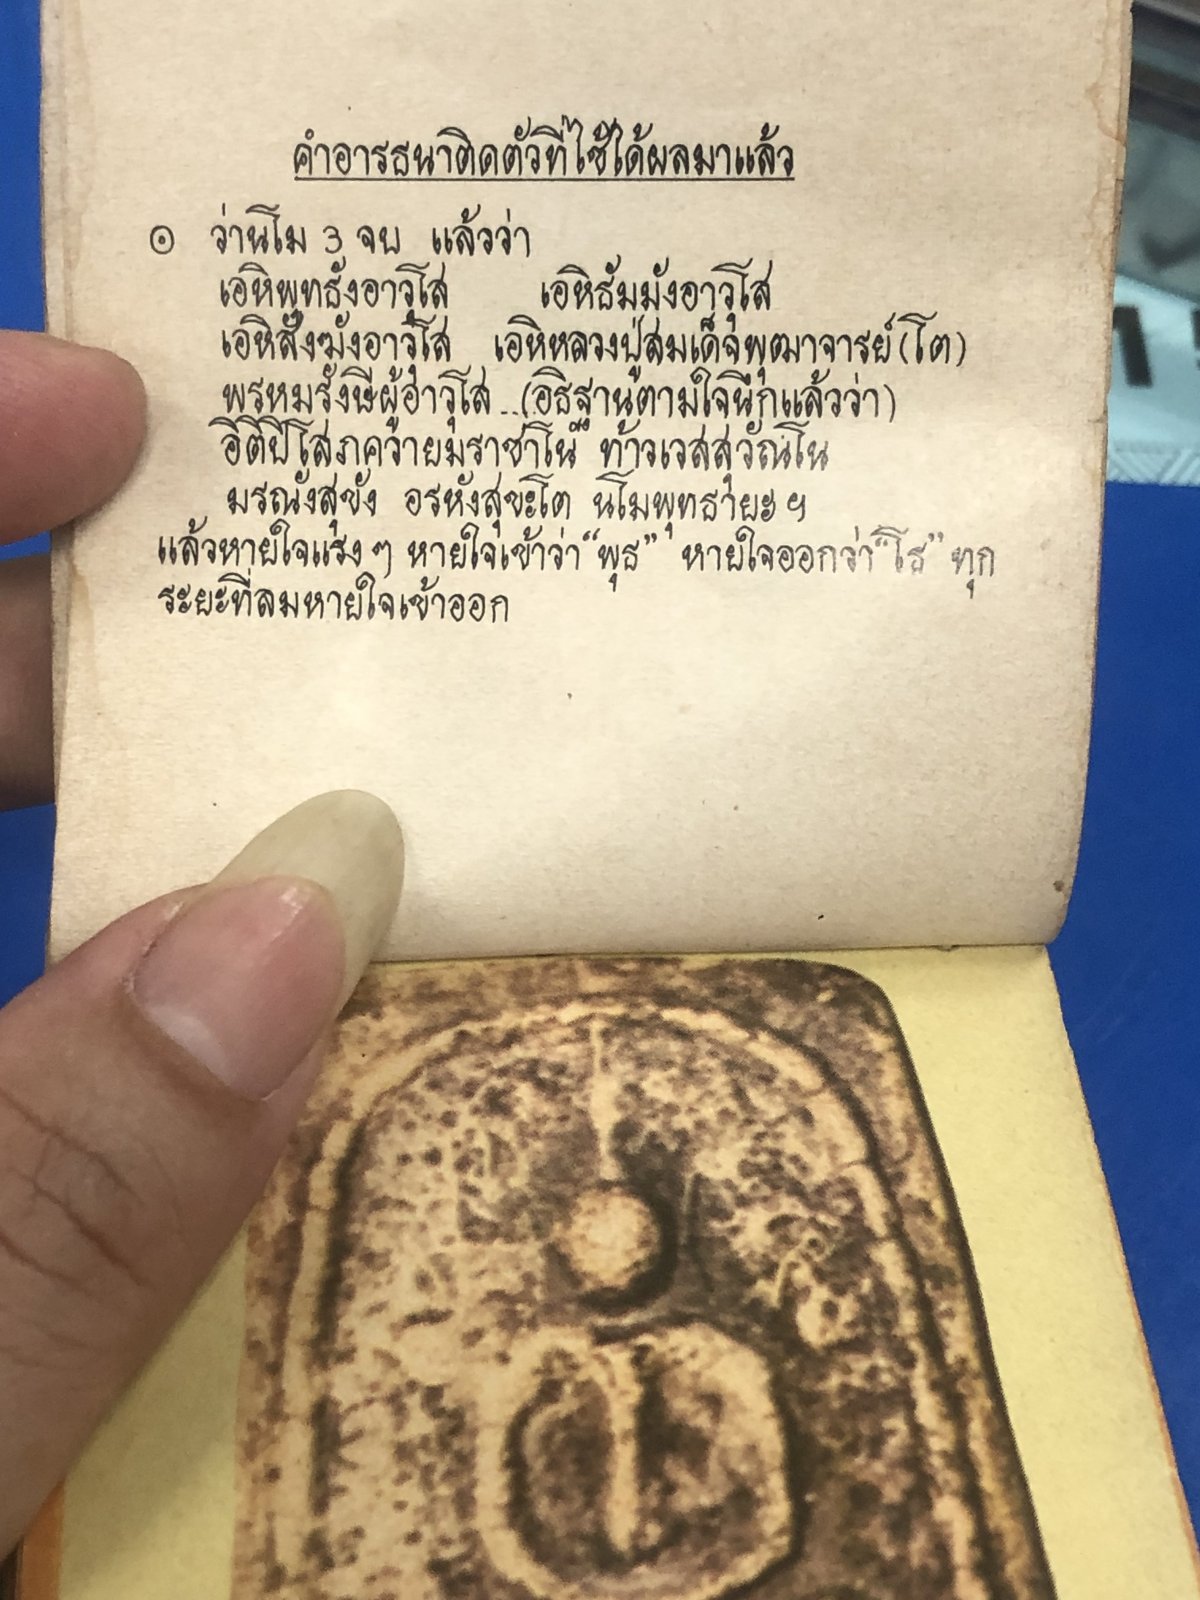 คำอารธนาติดตัวที่ใช้ได้ผลมาแล้ว
๏ ว่านโม 3 จบ แล้วว่า
เอหิพุทธังอาวุโส เอหิธัมมังอาวุโส
เอหิสังฆังอาวุโส เอหิหลวงปู่สมเด็จพุฒาจารย์(โต)
พรหมรังษีผู้อาวุโส...(อธิฐานตามใจนึกแล้วว่า)
อิติปิโสภควายมราชาโน ท้าวเวสสุวัณโน
มรณังสุขัง อรหังสุขะโต นโมพุทธายะฯ
แล้วหายใจแรงๆ หายใจเข้าว่า“พุธ” หายใจออกว่า“โธ” ทุก
ระยะที่ลมหายใจเข้าออก